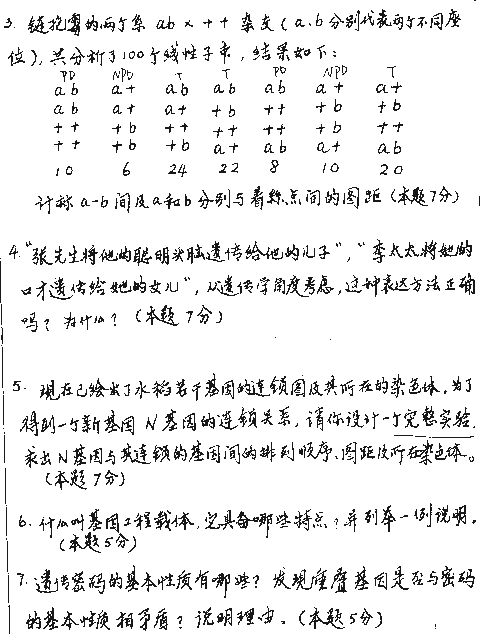 3. 链孢霉的两个系 ab × ++ 杂交(a、b分别代表两个不同座
位),共分析了100个线性子囊,结果如下:
PD NPD T T PD NPD T
ab a+ ab ab ab a+ a+
ab a+ a+ +b ++ +b +b
++ +b +b ++ ++ +b ++
++ +b ++ a+ ab a+ ab
10 6 24 22 8 10 20
计算 a-b 间及a和b分别与着丝点间的图距(本题7分)
4. “张先生将他的聪明头脑遗传给他的儿子”,“李太太将她的
口才遗传给她的女儿”,从遗传学角度考虑,这种表达方法正确
吗?为什么?(本题 7分)
5. 现在已绘出了水稻若干基因的连锁图及其所在的染色体,为了
得到一个新基因 N 基因的连锁关系,请你设计一个完整实验,
求出N基因与其连锁的基因间的排列顺序、图距及所在染色体。
(本题 7分)
6. 什么叫基因工程载体,它具备哪些特点?并列举一例说明。
(本题5分)
7. 遗传密码的基本性质有哪些?发现重叠基因是否与密码
的基本性质相矛盾?说明理由。(本题5分)